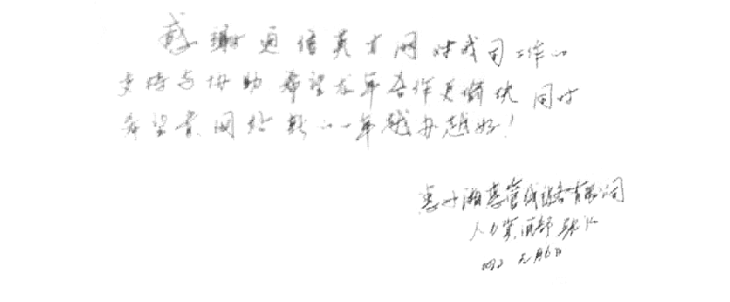 感谢通信英才网对我司工作的
支持与协助 希望龙年合作更愉快 同时
希望贵网站新的一年越办越好!
惠州 有限公司
人力资源部